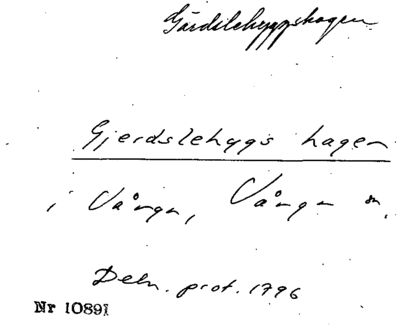 Gärdslehyggshagen
Gjerdslehyggs hagen
i Vånga, Vånga sn.
Deln. prot. 1796
Nr 10891